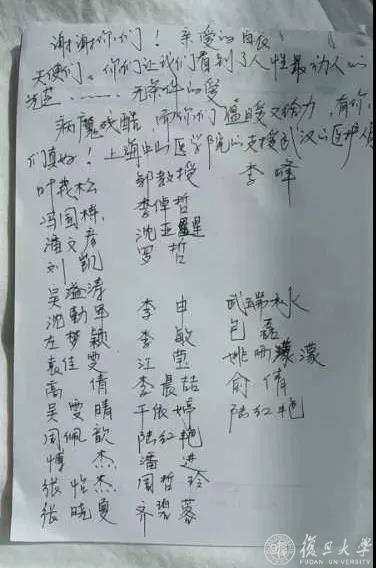 谢谢你们！亲爱的白衣
天使们。你们让我们看到了人性最动人的
光芒……无条件的爱
病魔残酷，而你们温暖又给力，有你
们真好！上海中山医学院的支援武汉的医护人
李峰
叶茂松 邹教授
冯国栋 李倬哲
潘文彦 沈亚星
刘凯 罗哲
吴溢涛 李申 武端水
沈勤军 李敏 包磊
左梦颖 江莹 姚雨濛
袁佳雯 李晨喆 俞倩
高倩 于依婷 陆红艳
吴雯晴 陆红艳
周佩歆 潘进
傅杰 周哲玲
张怡杰 齐碧蓉
张晓夏
復旦大學
FUDAN UNIVERSITY